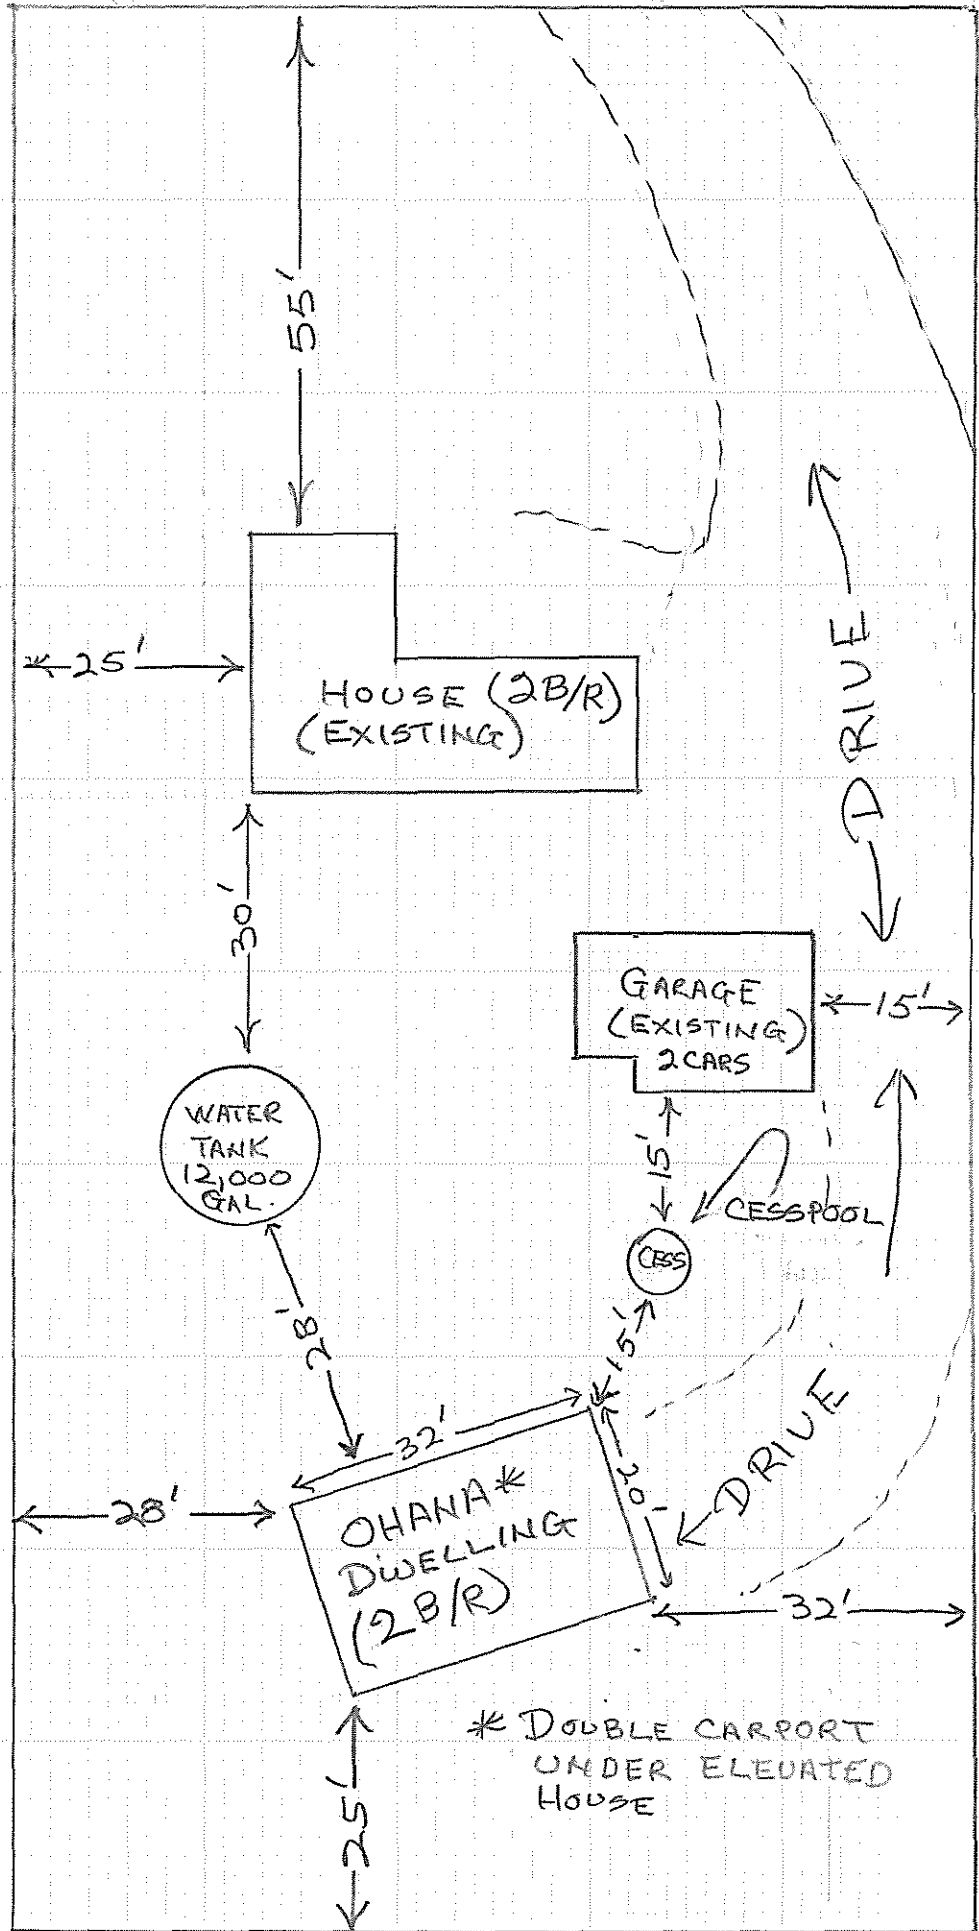 55'
25'
HOUSE (2B/R)
(EXISTING)
DRIVE
30'
GARAGE
(EXISTING)
2 CARS
15'
WATER
TANK
12,000
GAL.
15'
CESSPOOL
CESS
28'
15'
32'
28'
OHANA*
DWELLING
(2 B/R)
20'
DRIVE
32'
* DOUBLE CARPORT
UNDER ELEVATED
HOUSE
25'